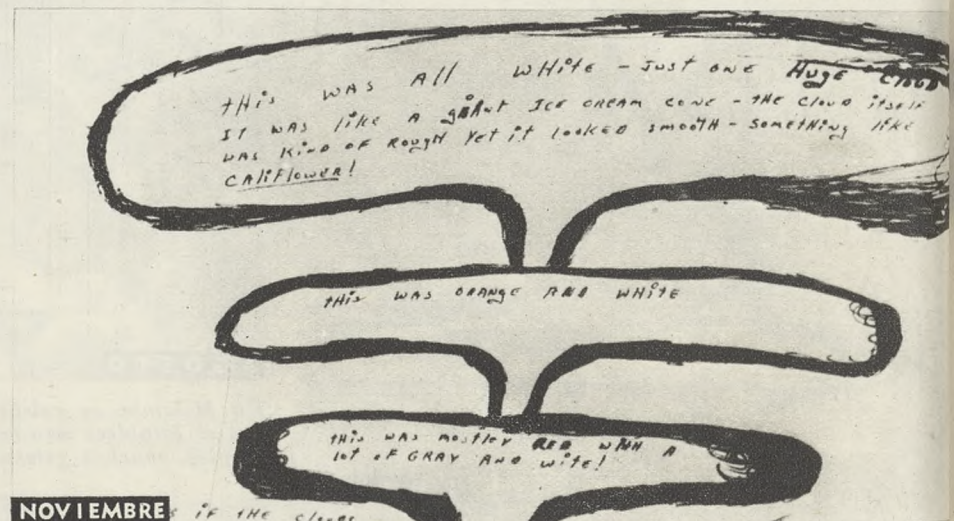 tHis WAS All WHite - Just oNE Huge CLOUD
IT WAS like A giANt ICE CREAM CONE - tHE CLOUD itself
WAS KIND OF ROUgH Yet it LOOKED SMOOTH - SOMETHINg like
CAliFlower!
tHis WAS ORANgE AND WHitE
tHis WAS mostley RED WitH A
lot oF GRAY AND WitE!
NOVIEMBRE
s iF tHE clouds